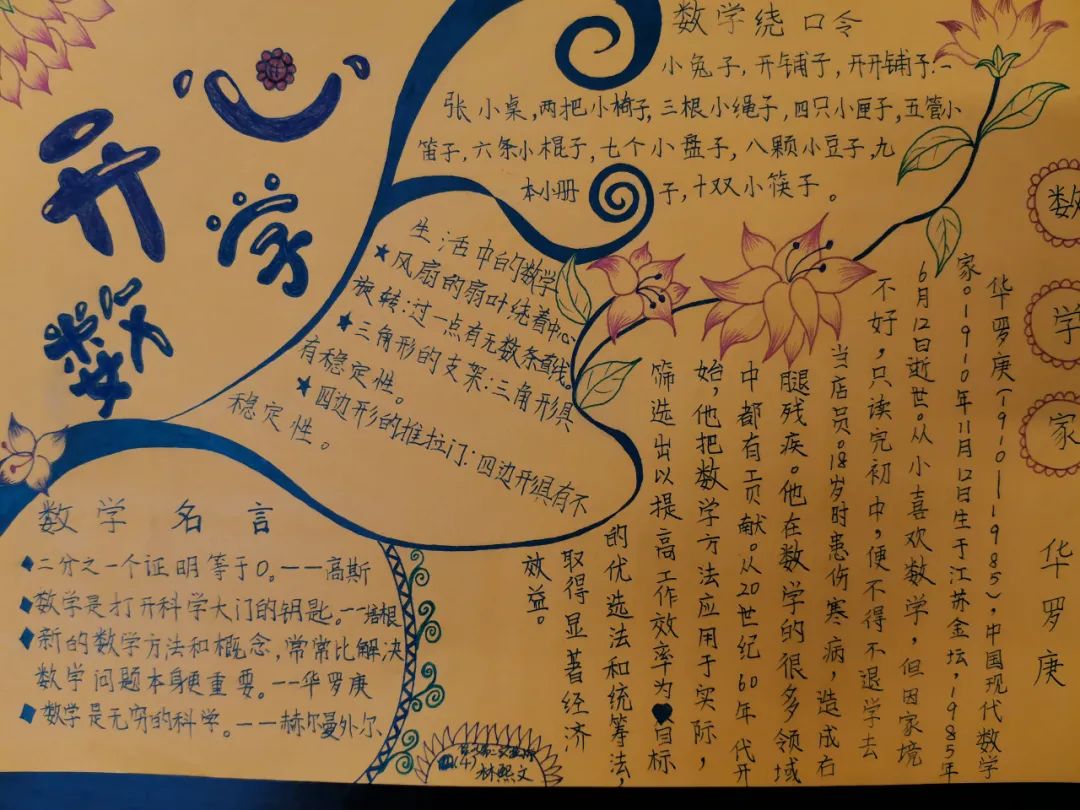 开心
数学
数学绕口令
小兔子,开铺子,开开铺子.一
张小桌,两把小椅子,三根小绳子,四只小匣子,五管小
笛子,六条小棍子,七个小盘子,八颗小豆子,九
本小册子,十双小筷子。
生活中的数学
★风扇的扇叶绕着中心
旋转:过一点有无数条直线。
★三角形的支架:三角形具
有稳定性。
★四边形的推拉门:四边形具有不
稳定性。
数学名言
◆二分之一个证明等于0。——高斯
◆数学是打开科学大门的钥匙。——培根
◆新的数学方法和概念,常常比解决
数学问题本身更重要。--华罗庚
◆数学是无穷的科学。——赫尔曼外尔
数学家
华罗庚
华罗庚(1910—1985),中国现代数学
家。1910年11月12日生于江苏金坛,1985年
6月12日逝世。从小喜欢数学,但因家境
不好,只读完初中,便不得不退学去
当店员。18岁时患伤寒病,造成右
腿残疾。他在数学的很多领域
中都有贡献。从20世纪60年代开
始,他把数学方法应用于实际,
筛选出以提高工作效率为目标
的优选法和统筹法,
取得显著经济
效益。
四(4) 林熙文